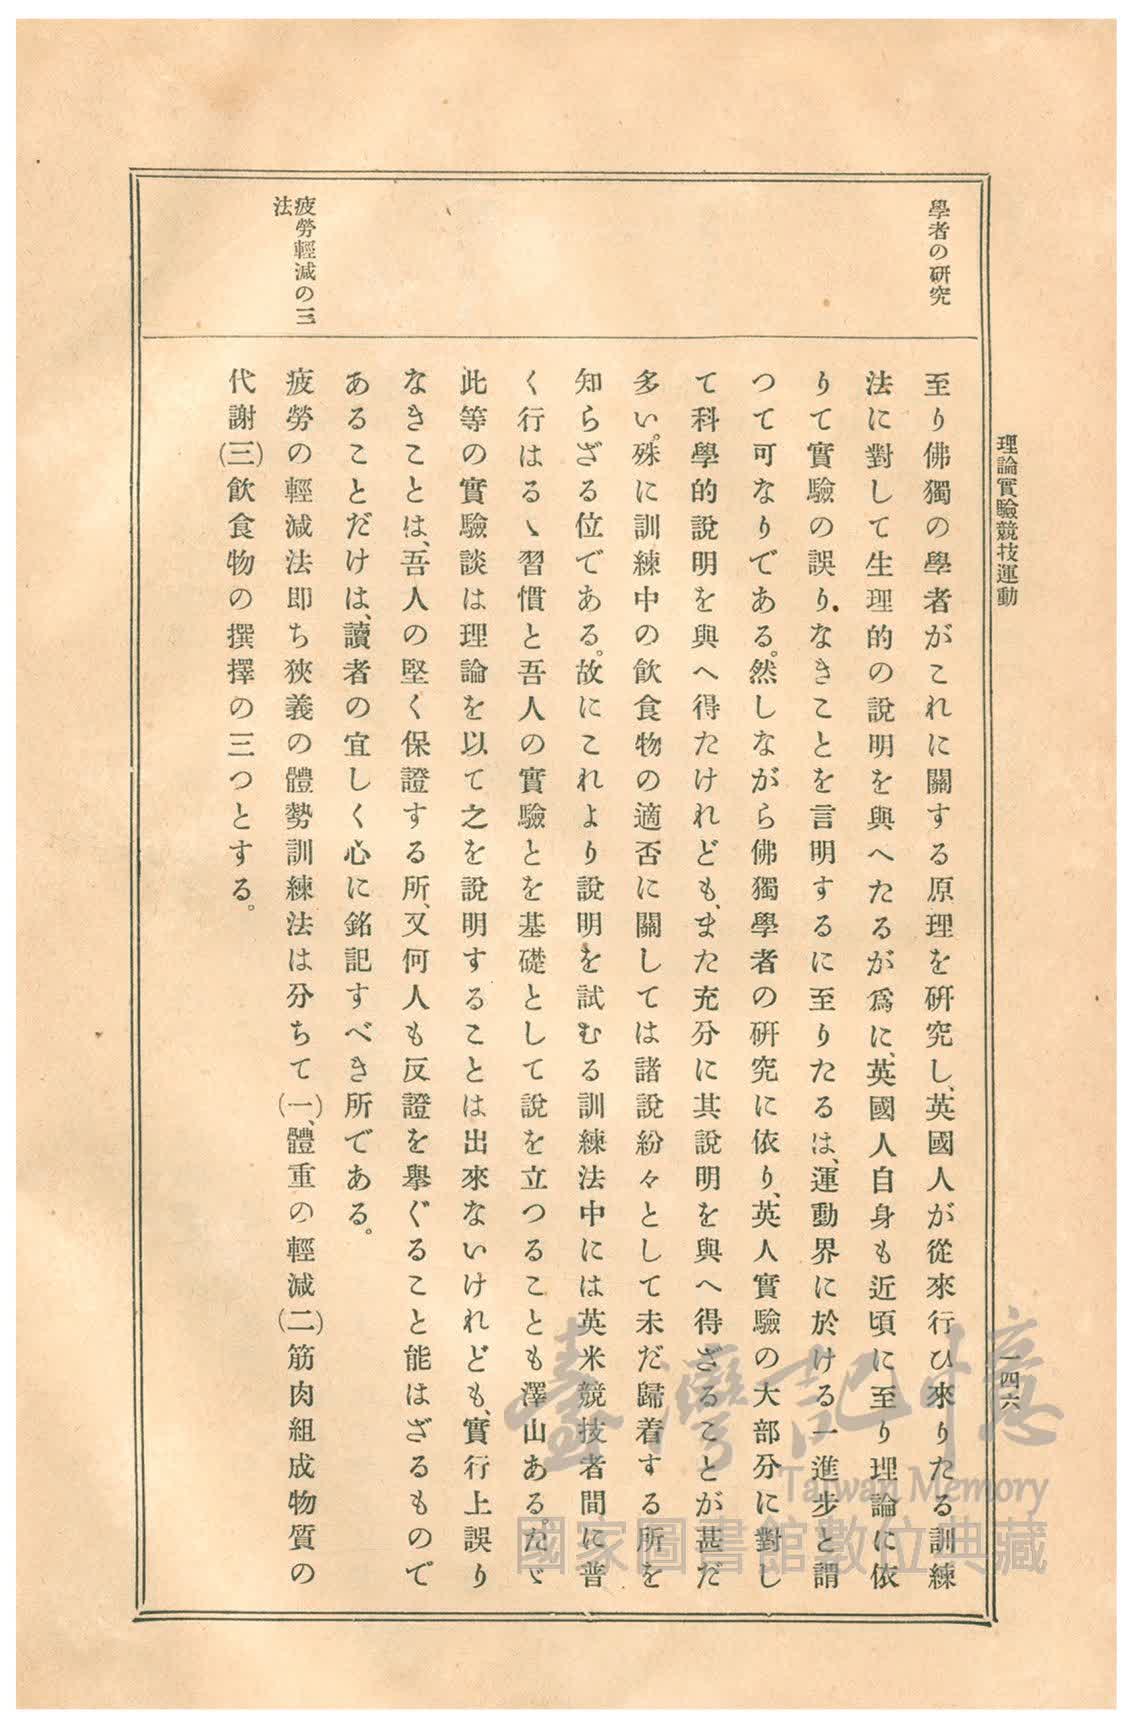 理論實驗競技運動
一四六
學者の研究
至り佛獨の學者がこれに關する原理を硏究し、英國人が從來行ひ來りたる訓練
法に對して生理的の說明を與へたるが爲に、英國人自身も近頃に至り理論に依
りて實驗の誤りなきことを言明するに至りたるは、運動界に於ける一進步と謂
つて可なりである。然しながら佛獨學者の硏究に依り、英人實驗の大部分に對し
て科學的說明を與へ得たけれども、また充分に其說明を與へ得ざることが甚だ
多い。殊に訓練中の飮食物の適否に關しては諸說紛々として未だ歸着する所を
知らざる位である。故にこれより說明を試むる訓練法中には英米競技者間に普
く行はるゝ習慣と吾人の實驗とを基礎として說を立つることも澤山ある。たゞ
此等の實驗談は理論を以て之を說明することは出來ないけれども、實行上誤り
なきことは、吾人の堅く保證する所、又何人も反證を擧ぐること能はざるもので
あることだけは、讀者の宜しく心に銘記すべき所である。
疲勞輕減の三
法
疲勞の輕減法卽ち狹義の體勢訓練法は分ちて(一)、體重の輕減(二)筋肉組成物質の
代謝(三)飮食物の撰擇の三つとする。
臺灣記憶
Taiwan Memory
國家圖書館數位典藏